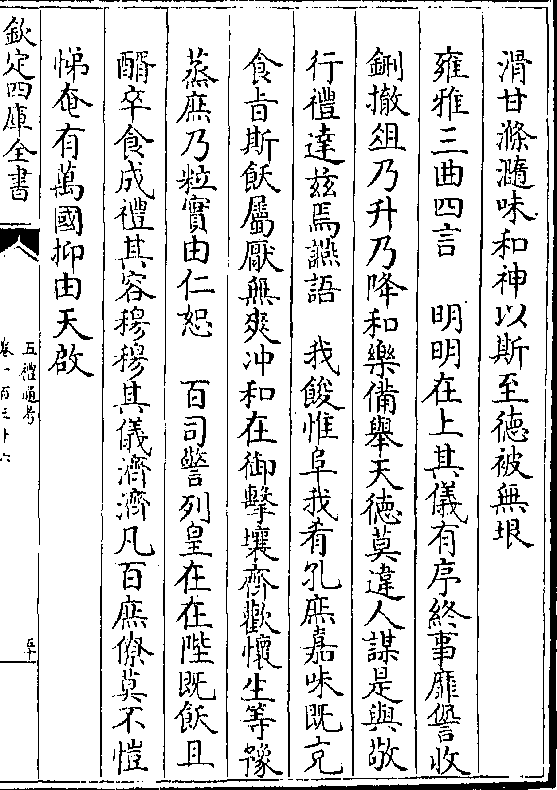 滑甘滌瀡味和神以斯至徳被無垠
雍雅三曲四言　明明在上其儀有序終事靡諐收
鉶撤俎乃升乃降和樂備舉天徳莫違人謀是與敬
行禮達兹焉讌語　我餕惟阜我肴孔庶嘉味既充
食旨斯飫屬厭無爽冲和在御擊壤齊歡懷生等豫
蒸庶乃粒實由仁恕　百司警列皇在在陛既飫且
醑卒食成禮其容穆穆其儀濟濟凡百庶僚莫不愷
悌奄有萬國抑由天啟
欽定四庫全書
五禮通考
卷一百三十六